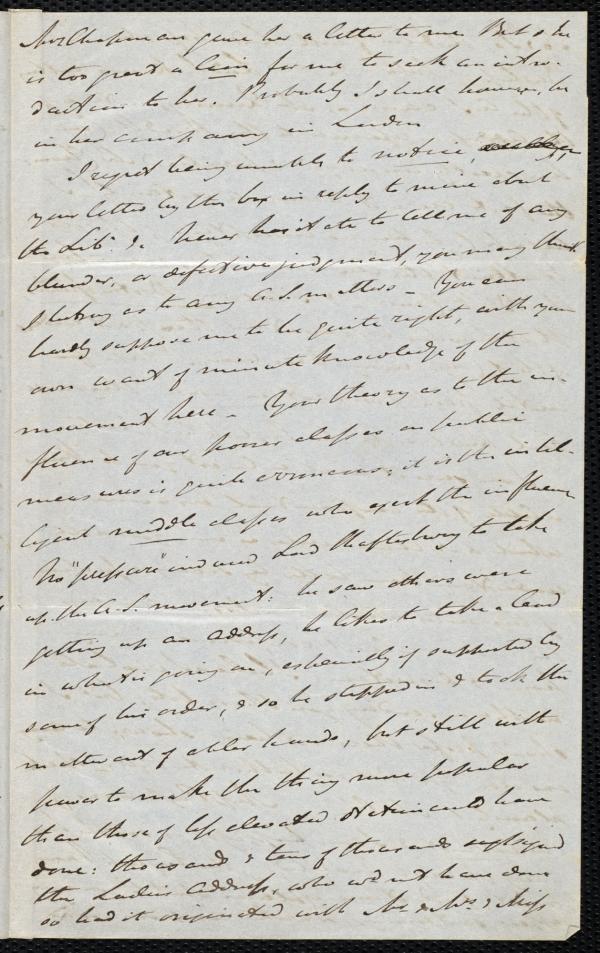 Mrs Chapman gave her a letter to me But she
is too great a Lion for me to seek an intro-
duction to her. Probably I shall however, be
in her company in London
I regret being unable to notice,
your letter by this box in reply to mine about
the Lib. &c Never hesitate to tell me of any
blunder, or defective judgment, you may think
I labor as to any A.S. matters - You can
hardly suppose me to be quite right, with your
own want of minute knowledge of the
movement here - Your theory as to the in-
fluence of our poorer classes on public
measures is quite erroneous; it is the intel-
ligent middle classes who exert the influence
No "pressure" induced Lord Shaftesbury to take
up the A.S. movement: he saw others were
getting up an address, he likes to take a lead
in what is going on, especially if supported by
some of his order, & so he stepped in & took the
matter out of abler hands, but still with
power to make the thing more popular
than those of less elevated station could have
done: thousands & tens of thousands
the Ladies address, who wd not have done
so had it originated with Mr & Mrs & Miss